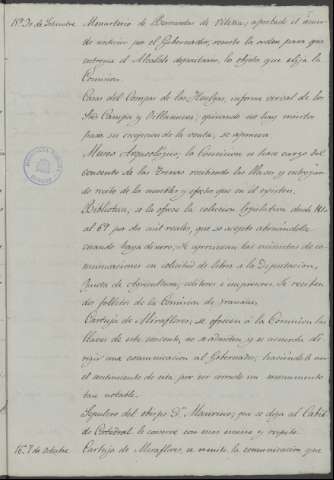 15ª 30 de Setiembre Monasterio de Bernardas de Villena; aprobado el acuer-
do anterior por el Gobernador, remite la orden para que
entregue el Alcalde depositario, los objetos que elija la
Comision.
Casa del Compas de las Huelgas, informe verbal de los
Sres Campo y Villanueva, opinando no hay motivo
para su excepcion de la venta, se aprueba
Museo Arqueológico, la Comision se hace cargo del
convento de las Trinas recibiendo las llaves y entregan-
do resto de los muebles y efectos que en él existen.
Biblioteca, se le ofrece la coleccion legislativa desde 1810
al 69 por dos mil reales, que se acepta abonándola
cuando haya dinero; Se aprueban las minutas de co-
municaciones en solicitud de libros a la Diputacion,
Junta de Agricultura, editores é impresores. Se reciben
dos folletos de la Comision de
Cartuja de Miraflores; se ofrecen á la Comision las
llaves de este convento, no se admiten y se acuerda di-
rigir una comunicacion al Gobernador, haciendole ver
el sentimiento de esta, por ver cerrado un monumento
tan notable.
Sepulcro del obispo Dn Mauricio; que se diga al Cabil-
do Catedral le conserve con mas esmero y respeto.
16. 7 de Octubre Cartuja de Miraflores, se remite la comunicacion que